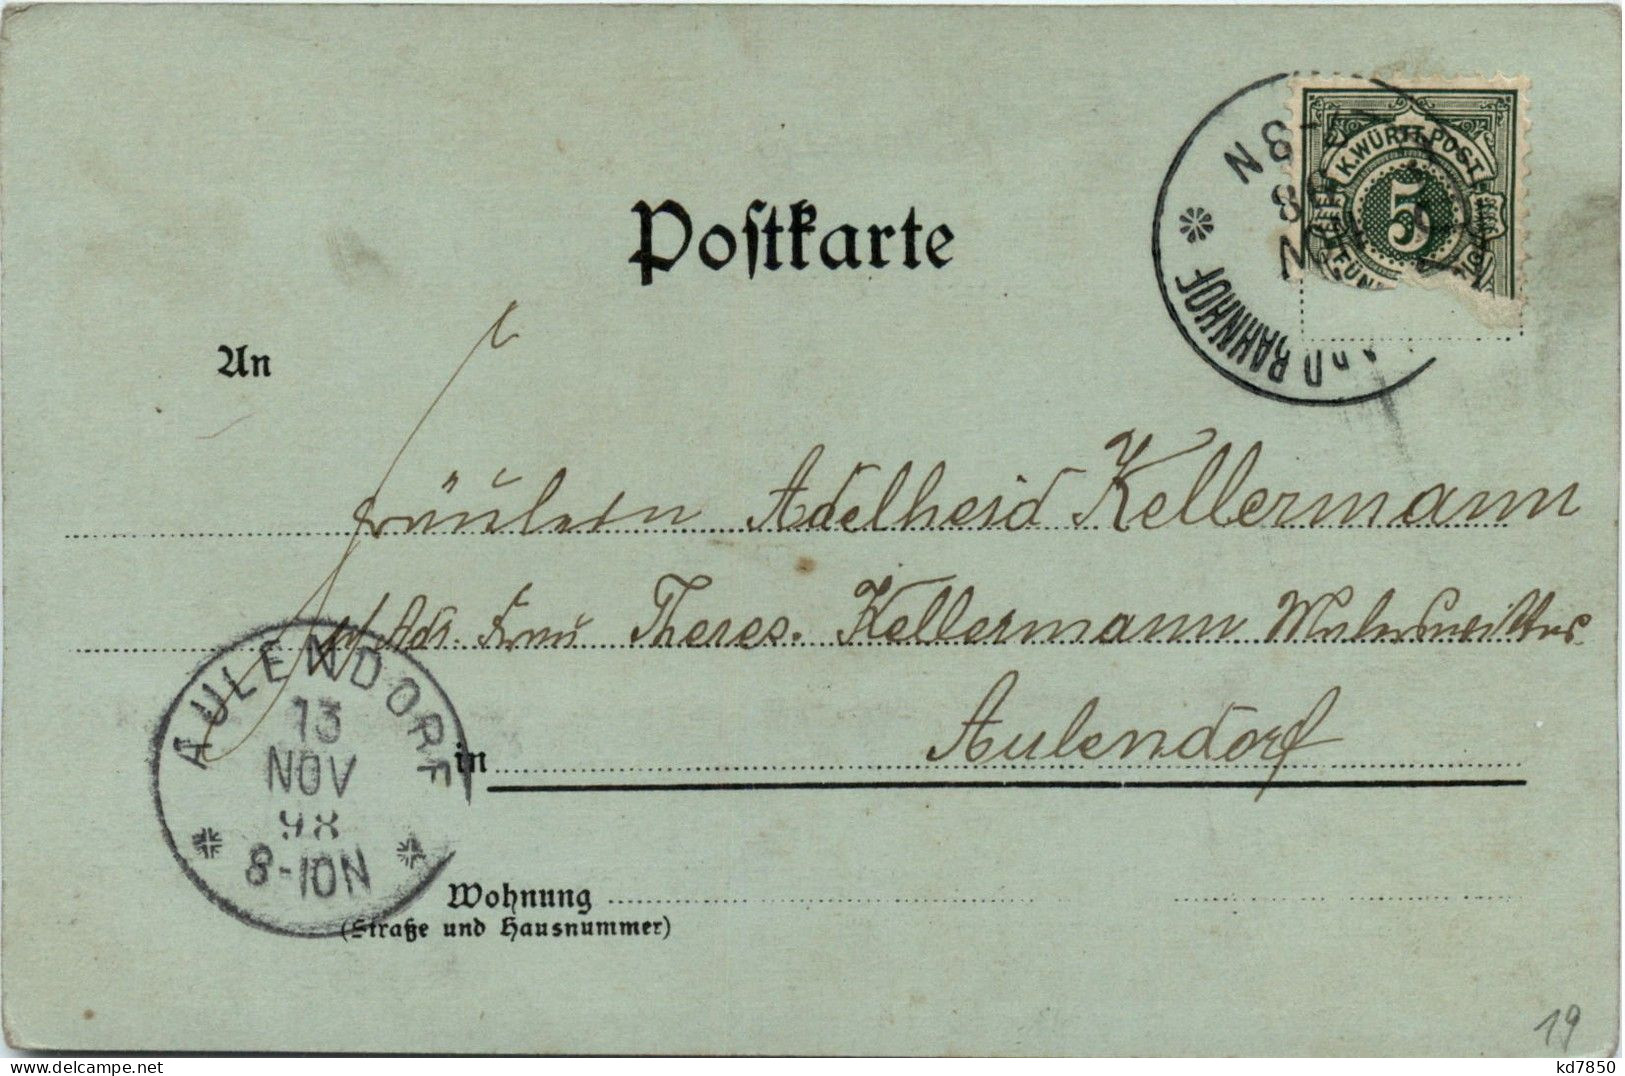 Postkarte
K. WÜRTT. POST
5
FÜN
BAHNHOF
An
Fräulein Adelheid Kellermann
Adr. Frau Theres. Kellermann
in Aulendorf
AULENDORF
13
NOV
98
8-10N
Wohnung
(Straße und Hausnummer)
19
kd7850